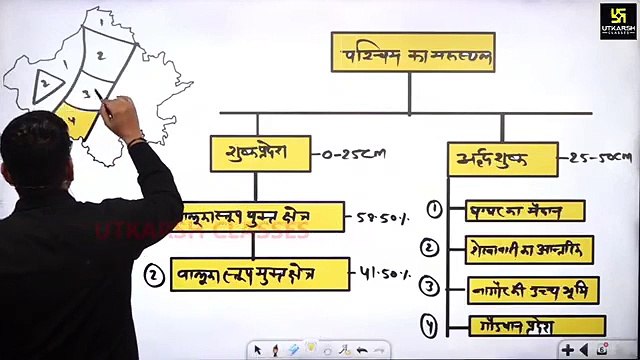 UTKARSH
CLASSES
पश्चिम का मरुस्थल
शुष्क प्रदेश
0-25cm
अर्द्धशुष्क
25-50cm
वालुका स्तूप युक्त क्षेत्र
58.50%
② वालुका स्तूप मुक्त क्षेत्र
41.50%
① घग्घर का मैदान
② शेखावाटी का आन्तरिक
③ नागौर की उच्च भूमि
④ गौडवाड प्रदेश
1
2
3
4
1
2
UTKARSH CLASSES